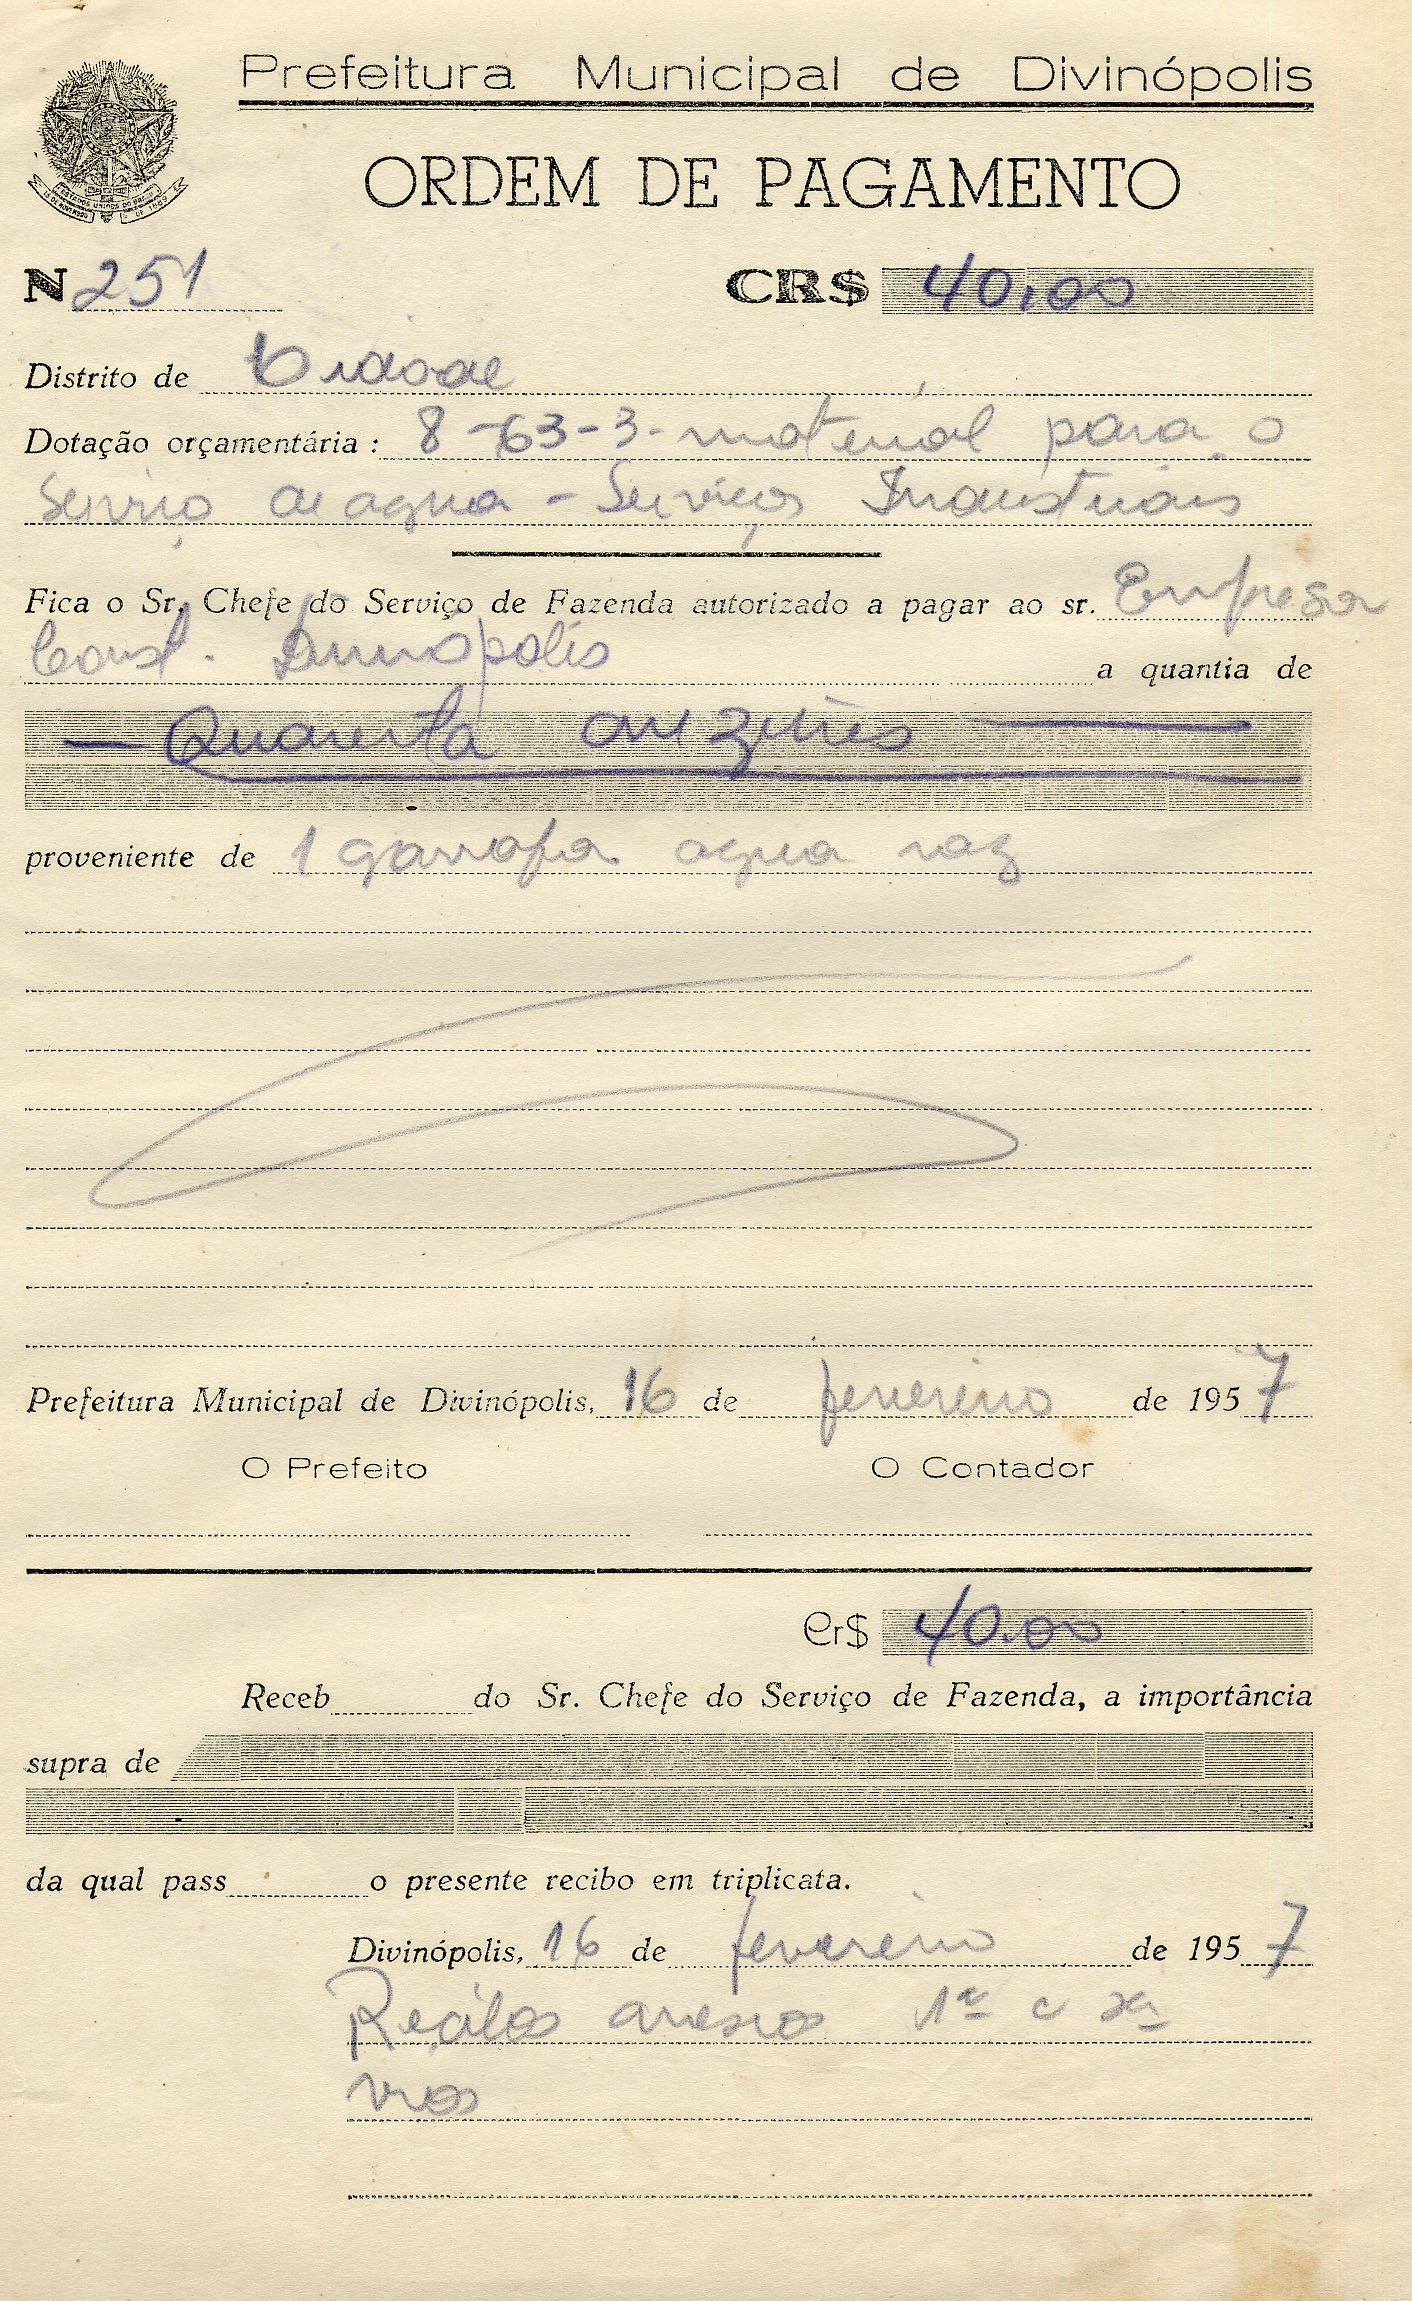 Prefeitura Municipal de Divinópolis
ORDEM DE PAGAMENTO
N 251 CR$ 40,00
Distrito de Cidade
Dotação orçamentária: 8-63-3- material para o
Serviço de agua - Serviços Industriais
Fica o Sr. Chefe do Serviço de Fazenda autorizado a pagar ao sr. Empresa
Const. Divinópolis a quantia de
— Quarenta cruzeiros —
proveniente de 1 garrafa agua raz
Prefeitura Municipal de Divinópolis, 16 de fevereiro de 1957
O Prefeito O Contador
Cr$ 40,00
Receb do Sr. Chefe do Serviço de Fazenda, a importância
supra de
da qual pass o presente recibo em triplicata.
Divinópolis, 16 de fevereiro de 1957
Recibos anexos 1ª e
vias